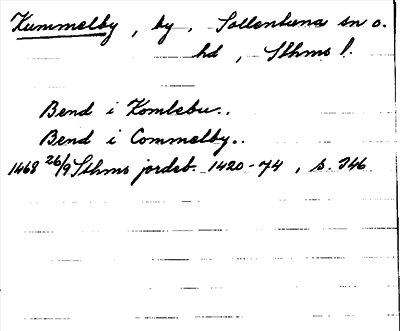 Kummelby, by, Sollentuna sn o.
hd, Sthms l.
Bend i Komblebu..
Bend i Commelby..
1468 26/9 Sthms jordeb. 1420-74, s. 346